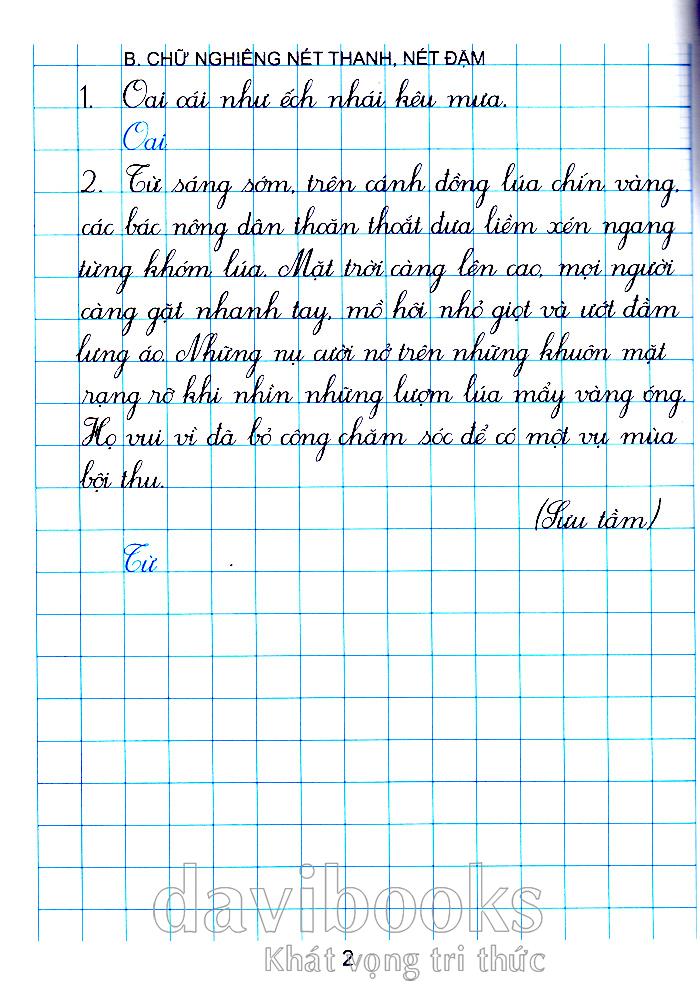 B. CHỮ NGHIÊNG NÉT THANH, NÉT ĐẬM
1. Oai oái như ếch nhái kêu mưa.
Oai
2. Từ sáng sớm, trên cánh đồng lúa chín vàng,
các bác nông dân thoăn thoắt đưa liềm xén ngang
từng khóm lúa. Mặt trời càng lên cao, mọi người
càng gặt nhanh tay, mồ hôi nhỏ giọt và ướt đầm
lưng áo. Những nụ cười nở trên những khuôn mặt
rạng rỡ khi nhìn những lượm lúa mẩy vàng óng.
Họ vui vì đã bỏ công chăm sóc để có một vụ mùa
bội thu.
(Sưu tầm)
Từ
davibooks
Khát vọng tri thức
2